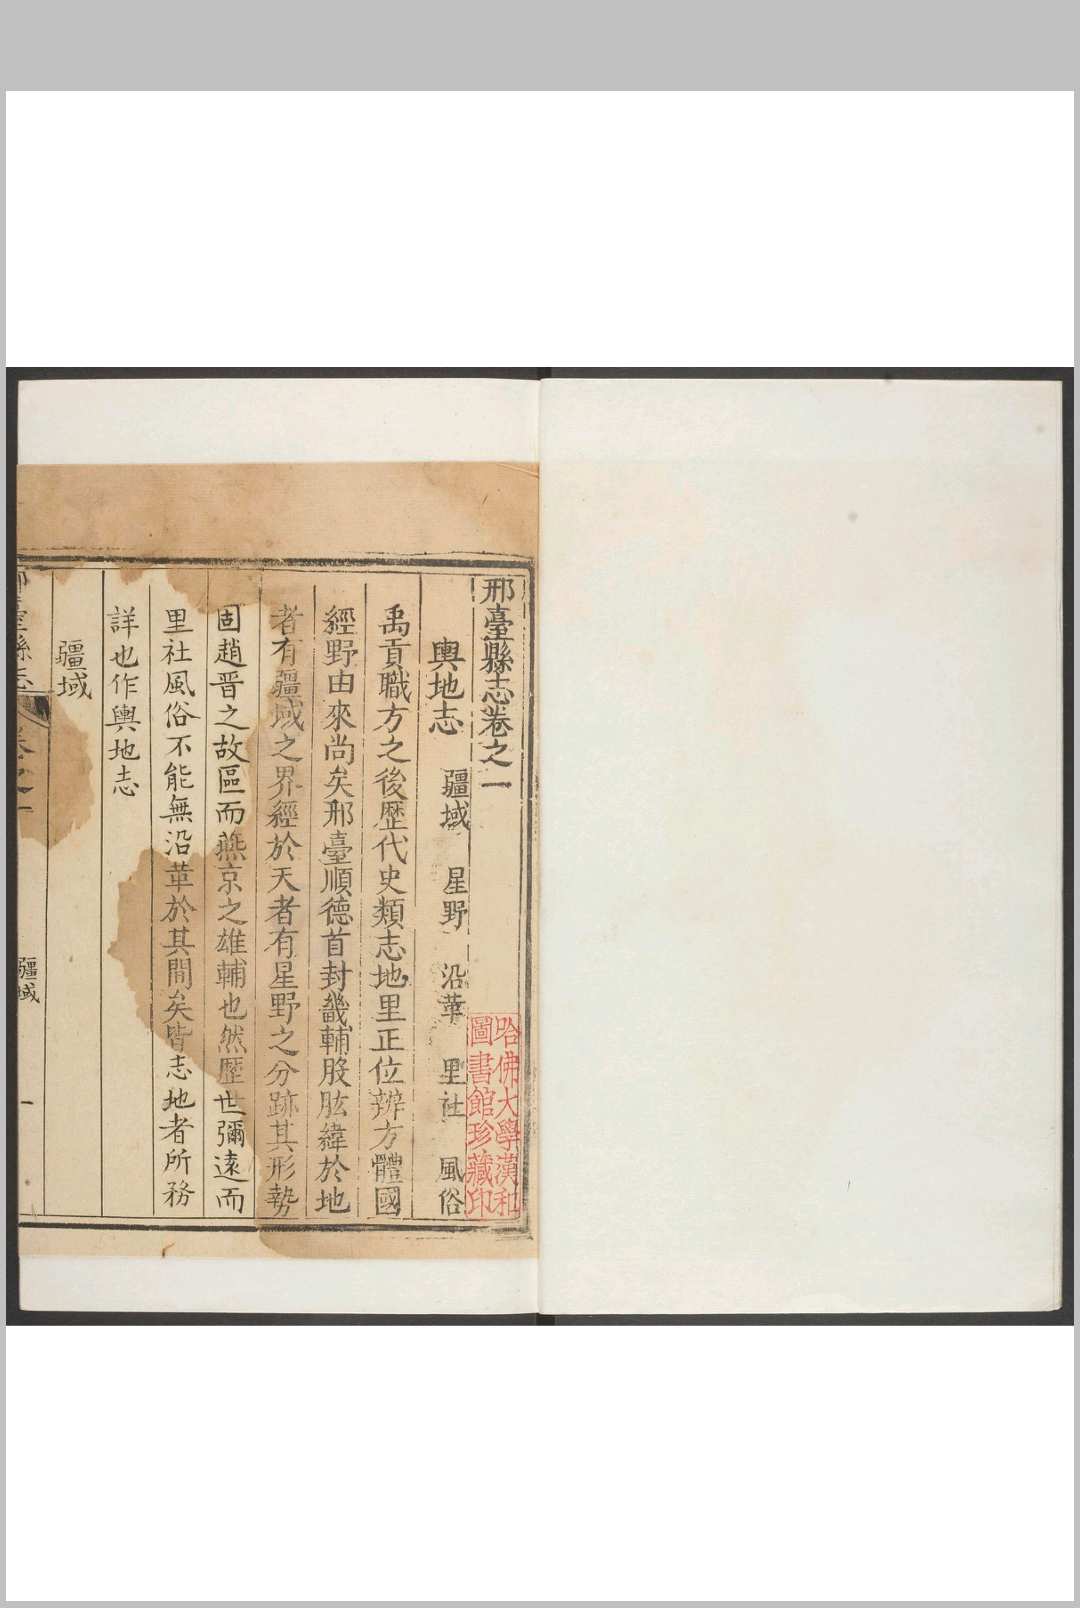 邢臺縣志卷之一
輿地志 疆域 星野 沿革 里社 風俗
禹貢職方之後歷代史類志地里正位辨方體國
經野由來尚矣邢臺順德首封畿輔股肱緯於地
者有疆域之界經於天者有星野之分跡其形勢
固趙晉之故區而燕京之雄輔也然歷世彌遠而
里社風俗不能無沿革於其間矣皆志地者所務
詳也作輿地志
疆域
縣志
疆域
一
哈佛大學漢和
圖書館珍藏印